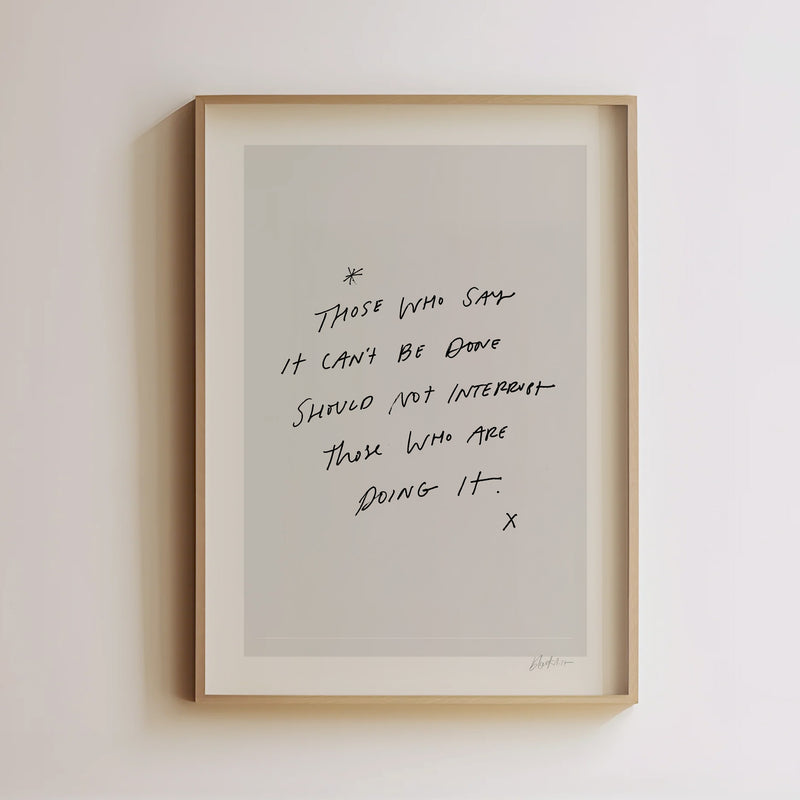 *
THOSE WHO SAY
It CAN't BE DONE
SHOULD NOt INTERRUPt
those WHO ARE
DOING It.
X